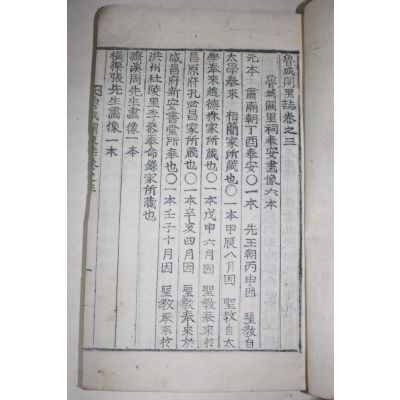 魯城闕里誌卷之三
魯城闕里祠奉安畫像六本
元本 肅廟朝丁酉奉安○一本 先王朝丙申因 聖教自
太學奉來 相簡家所藏也○一本甲辰八月因 聖教自太
學奉來趙德霖家所藏也○一本戊申六月因 聖教奉來於
昌原府孔昌家所藏也○一本辛亥四月因 聖教奉來於
咸昌府新安書堂所奉也○一本壬子十月因 聖教奉來於
洪州杜陵里李奉命家所藏也
濂溪周先生畫像一本
橫渠張先生畫像一本